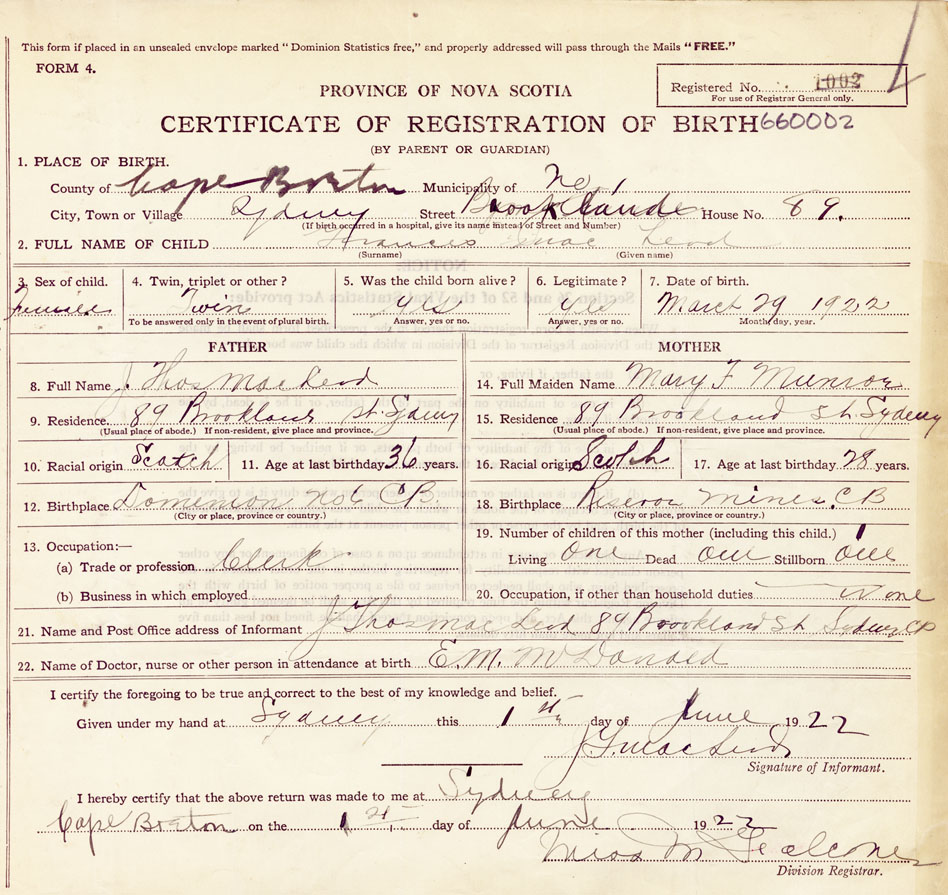 This form if placed in an unsealed envelope marked "Dominion Statistics free," and properly addressed will pass through the Mails "FREE."
FORM 4.
Registered No. 1002
For use of Registrar General only.
PROVINCE OF NOVA SCOTIA
CERTIFICATE OF REGISTRATION OF BIRTH 660002
(BY PARENT OR GUARDIAN)
1. PLACE OF BIRTH.
County of Cape Breton Municipality of No
City, Town or Village Sydney Street House No. 89.
(If birth occurred in a hospital, give its name instead of Street and Number)
2. FULL NAME OF CHILD Francis Mac Leod
(Surname) (Given name)
3. Sex of child. 4. Twin, triplet or other? 5. Was the child born alive? 6. Legitimate? 7. Date of birth.
Twin Yes Yes March 29 1922
To be answered only in the event of plural birth. Answer, yes or no. Answer, yes or no. Month, day, year.
FATHER MOTHER
8. Full Name J. Thos MacLeod 14. Full Maiden Name Mary F Munroe
9. Residence 89 Brookland St Sydney 15. Residence 89 Brookland St Sydney
(Usual place of abode.) If non-resident, give place and province. (Usual place of abode.) If non-resident, give place and province.
10. Racial origin Scotch 11. Age at last birthday 36 years. 16. Racial origin Scotch 17. Age at last birthday 28 years.
12. Birthplace Dominion No 6 CB 18. Birthplace Reserve Mines, C B
(City or place, province or country.) (City or place, province or country.)
13. Occupation:— 19. Number of children of this mother (including this child.)
(a) Trade or profession Clerk Living one Dead one Stillborn one
(b) Business in which employed 20. Occupation, if other than household duties None
21. Name and Post Office address of Informant J Thos Mac Leod 89 Brookland St Sydney CB
22. Name of Doctor, nurse or other person in attendance at birth E.M. McDonald
I certify the foregoing to be true and correct to the best of my knowledge and belief.
Given under my hand at Sydney this 1st day of June 1922
J T MacLeod
Signature of Informant.
I hereby certify that the above return was made to me at Sydney
Cape Breton on the 1st day of June 1922
Miss M Falconer
Division Registrar.